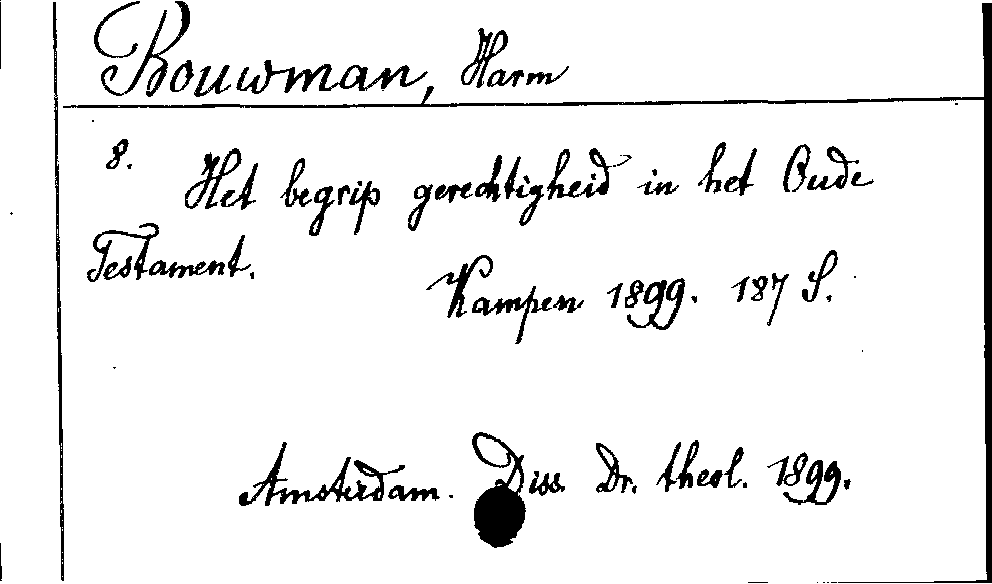 Bouwman, Harm
8.
Het begrip gerechtigheid in het Oude
Testament.
Kampen 1899. 187 S.
Amsterdam. Diss. Dr. theol. 1899.